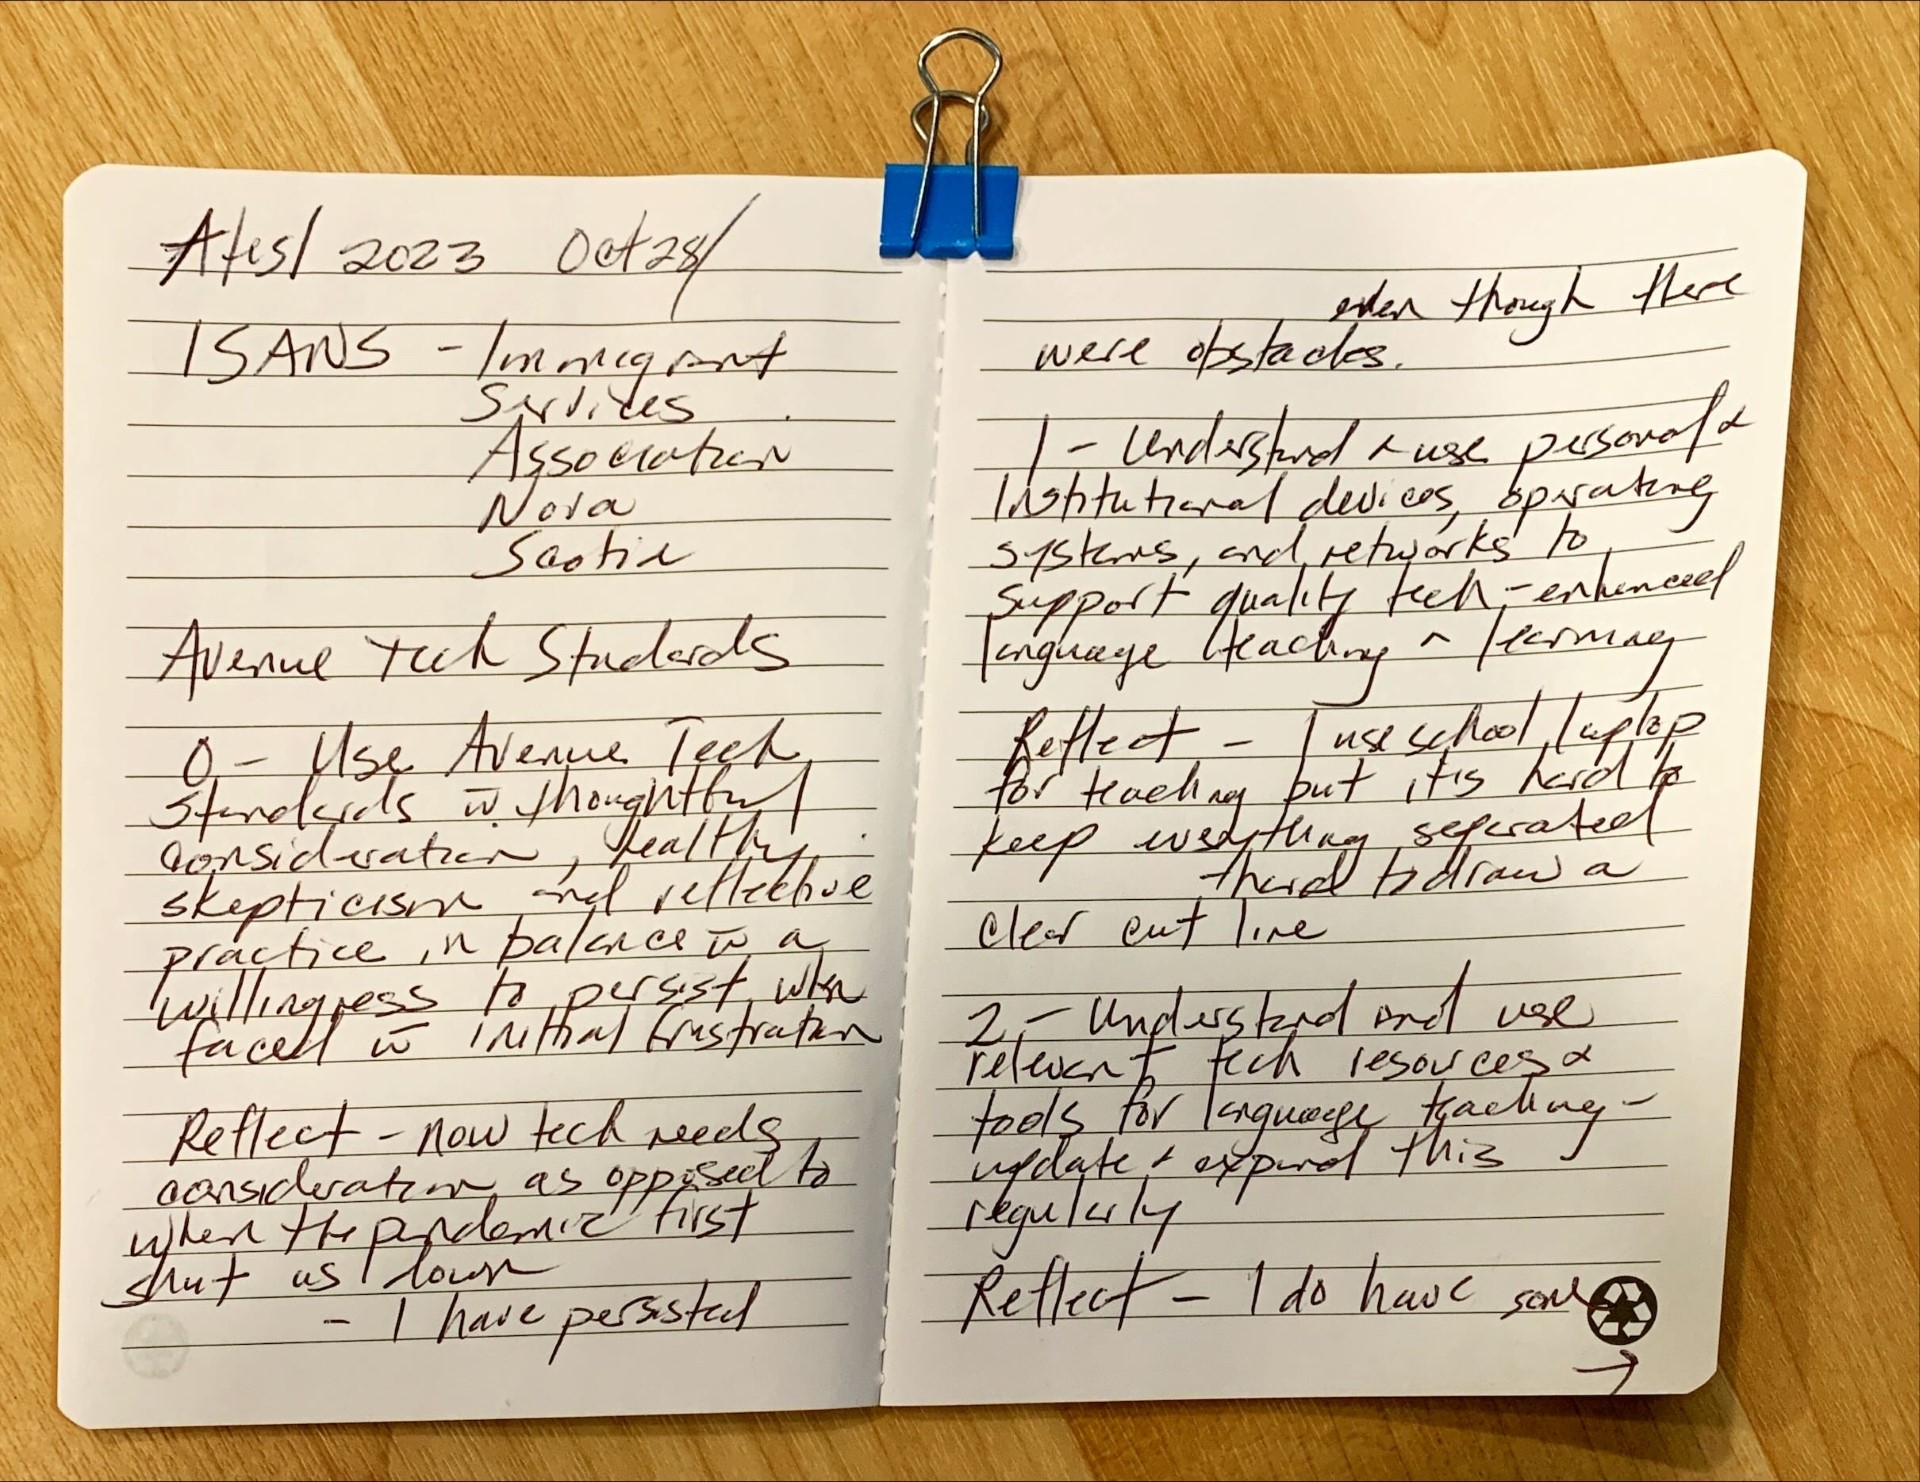 Atesl 2023 Oct 28/
ISANS - Immigrant
Services
Association
Nova
Scotia
Avenue Tech Standards
0 - Use Avenue Tech
Standards w̄ thoughtful
consideration, healthy
skepticism and reflective
practice in balance w̄ a
willingness to persist when
faced w̄ initial frustration
Reflect - now tech needs
consideration as opposed to
when the pandemic first
shut us down
- I have persisted
even though there
were obstacles.
1 - Understand + use personal +
Institutional devices, operating
systems, and networks to
support quality tech-enhanced
language teaching + learning
Reflect - I use school laptop
for teaching but it is hard to
keep everything separated
hard to draw a
clear cut line
2 - Understand and use
relevant tech resources +
tools for language teaching -
update + expand this
regularly
Reflect - I do have some
→